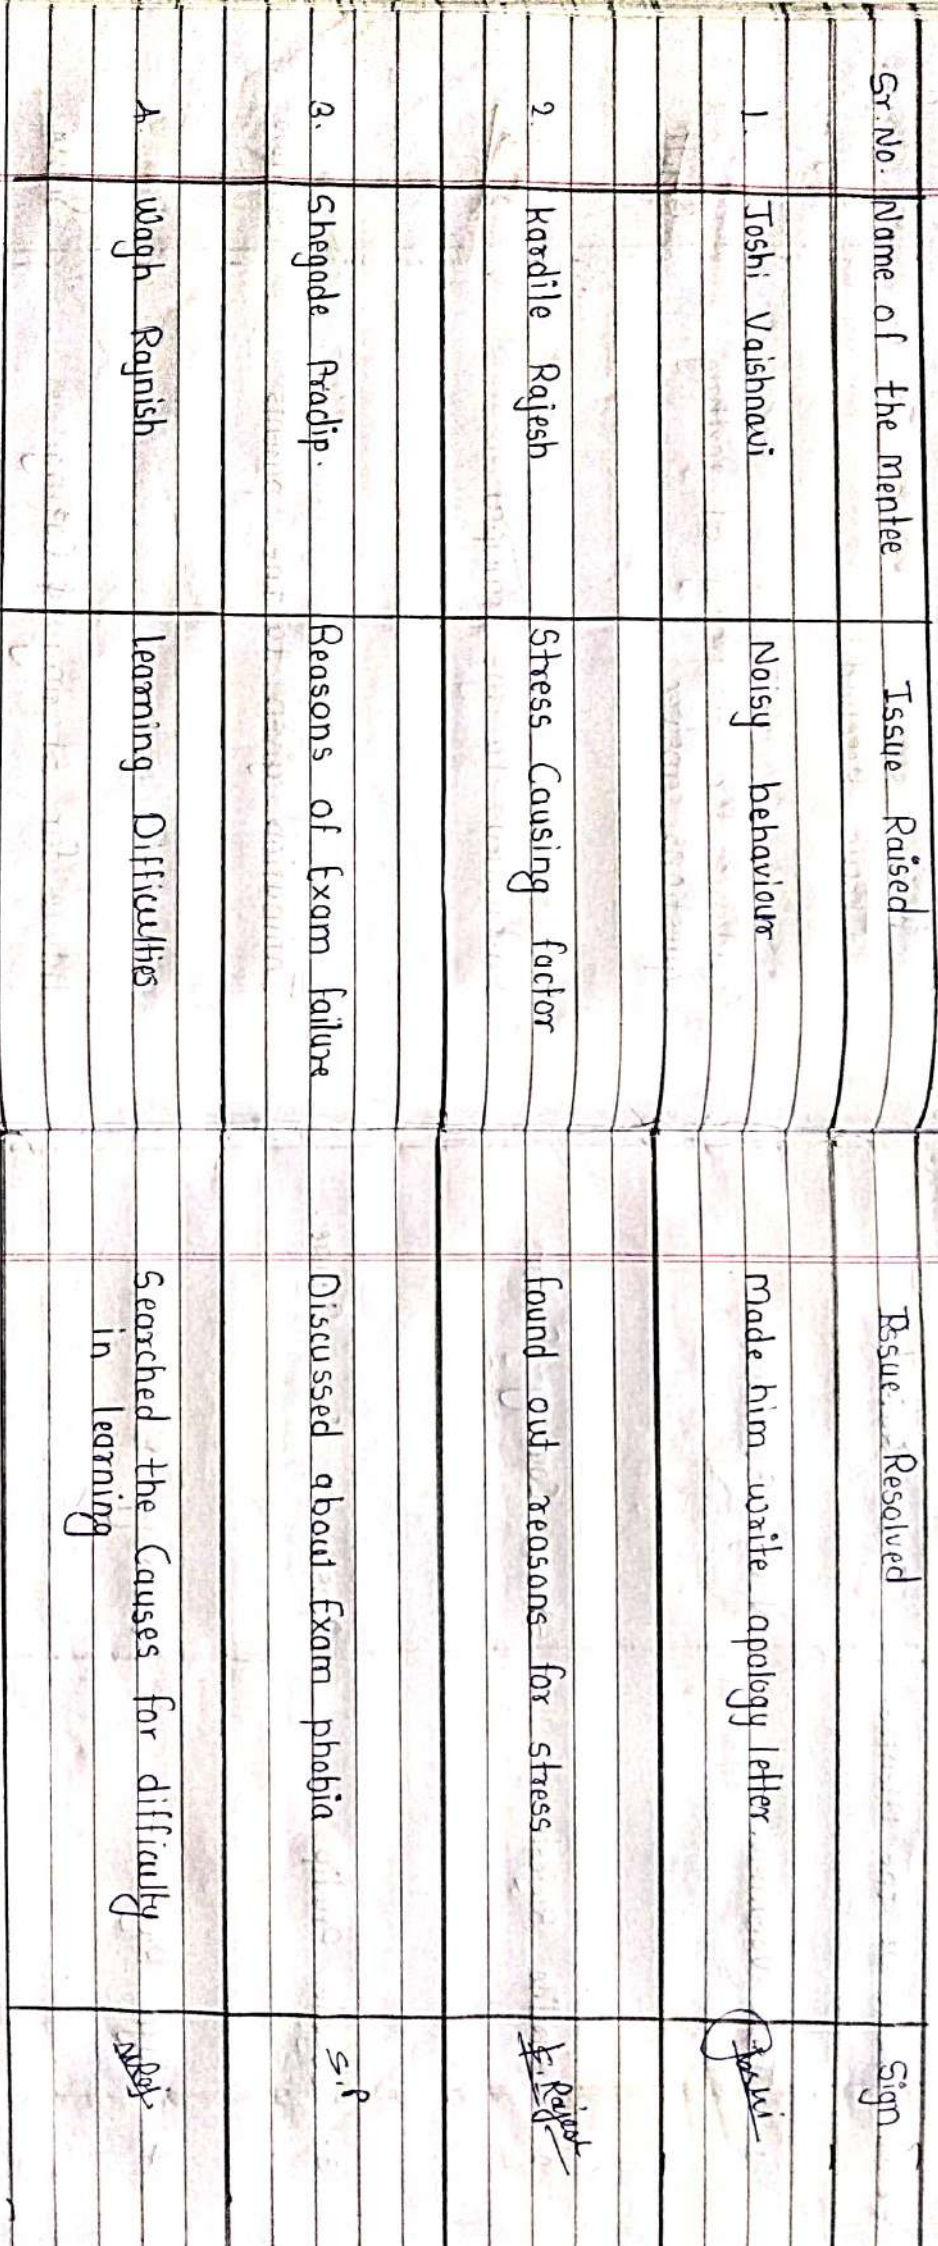 Sr. No. Name of the Mentee Issue Raised Issue Resolved Sign
1. Joshi Vaishnavi Noisy behaviour Made him write apology letter. Joshi
2. Kardile Rajesh Stress Causing factor found out reasons for stress K. Rajesh
3. Shegade Pradip. Reasons of Exam failure Discussed about Exam phobia S.P
4. Wagh Rajnish learning Difficulties Searched the Causes for difficulty
in learning